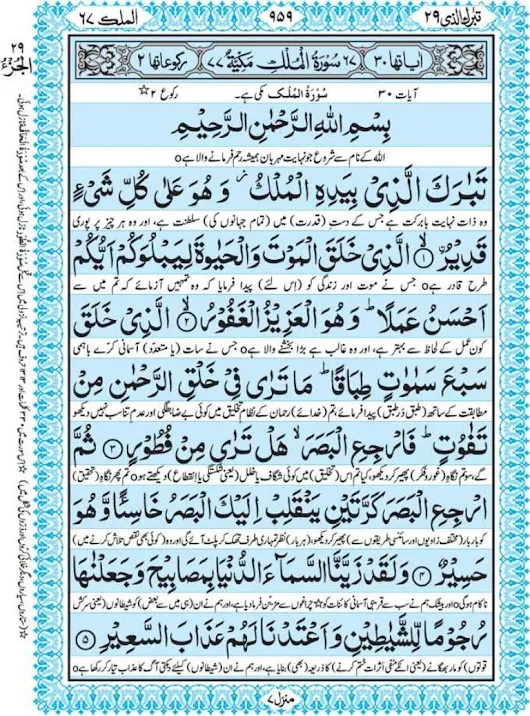 تبٰرک الذی ۲۹
۹۵۹
الملک ۶۷
اٰیاتھا ۳۰ ۶۷ سُوْرَةُ الْمُلْكِ مَكِّيَّةٌ ۷۷ رکوعاتھا ۲
آیات ۳۰ سُوْرَةُ الْمُلْك مکی ہے۔ رکوع ۲
بِسْمِ اللهِ الرَّحْمٰنِ الرَّحِيْمِ
اللہ کے نام سے شروع جو نہایت مہربان ہمیشہ رحم فرمانے والا ہے o
تَبٰرَكَ الَّذِیْ بِیَدِهِ الْمُلْكُ ز وَ هُوَ عَلٰی كُلِّ شَیْءٍ
وہ ذات نہایت بابرکت ہے جس کے دستِ (قدرت) میں (تمام جہانوں کی) سلطنت ہے، اور وہ ہر چیز پر پوری
قَدِیْرُ ۙ﴿۱﴾ الَّذِیْ خَلَقَ الْمَوْتَ وَ الْحَیٰوةَ لِیَبْلُوَكُمْ اَیُّكُمْ
طرح قادر ہے o جس نے موت اور زندگی کو (اِس لئے) پیدا فرمایا کہ وہ تمہیں آزمائے کہ تم میں سے
اَحْسَنُ عَمَلًا ؕ وَ هُوَ الْعَزِیْزُ الْغَفُوْرُ ۙ﴿۲﴾ الَّذِیْ خَلَقَ
کون عمل کے لحاظ سے بہتر ہے، اور وہ غالب ہے بڑا بخشنے والا ہے o جس نے سات (یا متعدّد) آسمانی کرّے باہمی
سَبْعَ سَمٰوٰتٍ طِبَاقًا ؕ مَا تَرٰی فِیْ خَلْقِ الرَّحْمٰنِ مِنْ
مطابقت کے ساتھ (طبق دَر طبق) پیدا فرمائے، تم (خدائے) رحمان کے نظامِ تخلیق میں کوئی بے ضابطگی اور عدمِ تناسب نہیں دیکھو
تَفٰوُتٍ ؕ فَارْجِعِ الْبَصَرَ ۙ هَلْ تَرٰی مِنْ فُطُوْرٍ ﴿۳﴾ ثُمَّ
گے، سو تم نگاہِ (غور و فکر) پھیر کر دیکھو، کیا تم اس (تخلیق) میں کوئی شگاف یا خلل (یعنی شکستگی یا اِنقطاع) دیکھتے ہو o تم پھر نگاہِ (تحقیق)
ارْجِعِ الْبَصَرَ كَرَّتَیْنِ یَنْقَلِبْ اِلَیْكَ الْبَصَرُ خَاسِئًا وَّ هُوَ
کو بار بار (مختلف زاویوں اور سائنسی طریقوں سے) پھیر کر دیکھو، (ہر بار) نظر تمہاری طرف تھک کر پلٹ آئے گی اور وہ (کوئی بھی نقص تلاش کرنے میں)
حَسِیْرٌ ﴿۴﴾ وَ لَقَدْ زَیَّنَّا السَّمَآءَ الدُّنْیَا بِمَصَابِیْحَ وَ جَعَلْنٰهَا
ناکام ہو گی o اور بیشک ہم نے سب سے قریبی آسمانی کائنات کو چراغوں سے مزین فرما دیا ہے، اور ہم نے ان (ہی میں سے بعض) کو شیطانوں (یعنی سرکش
رُجُوْمًا لِّلشَّیٰطِیْنِ وَ اَعْتَدْنَا لَهُمْ عَذَابَ السَّعِیْرِ ﴿۵﴾
قوتوں) کو مار بھگانے (یعنی ان کے منفی اثرات ختم کرنے) کا ذریعہ (بھی) بنایا ہے، اور ہم نے ان (شیطانوں) کیلئے دہکتی آگ کا عذاب تیار کر رکھا ہے
منزل ۷
الجزء ۲۹